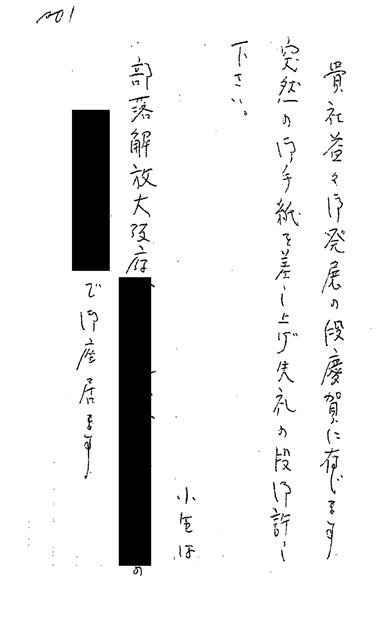 No1
貴社益々御発展の段慶賀に存じます
突然の御手紙を差し上げ失礼の段御許し
下さい。
小生は
部落解放大阪府
の
で御座居ます。